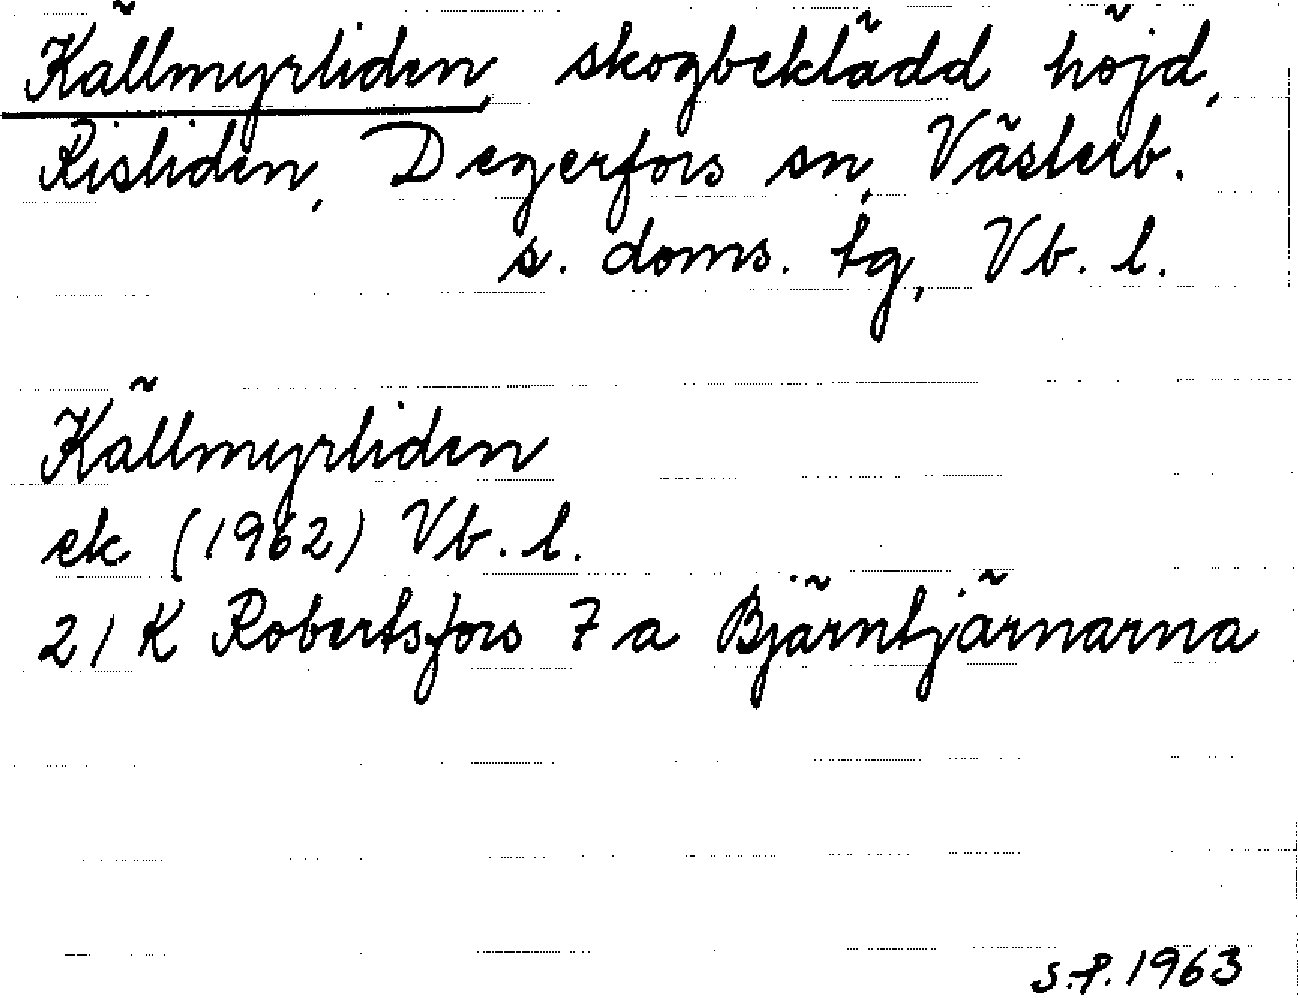 Källmyrliden, skogbeklädd höjd,
Risliden, Degerfors sn, Västerb.
s. doms. tg, Vb. l.
Källmyrliden
ek (1962) Vb. l.
21 K Robertsfors 7 a Bjärntjärnarna
S.F. 1963